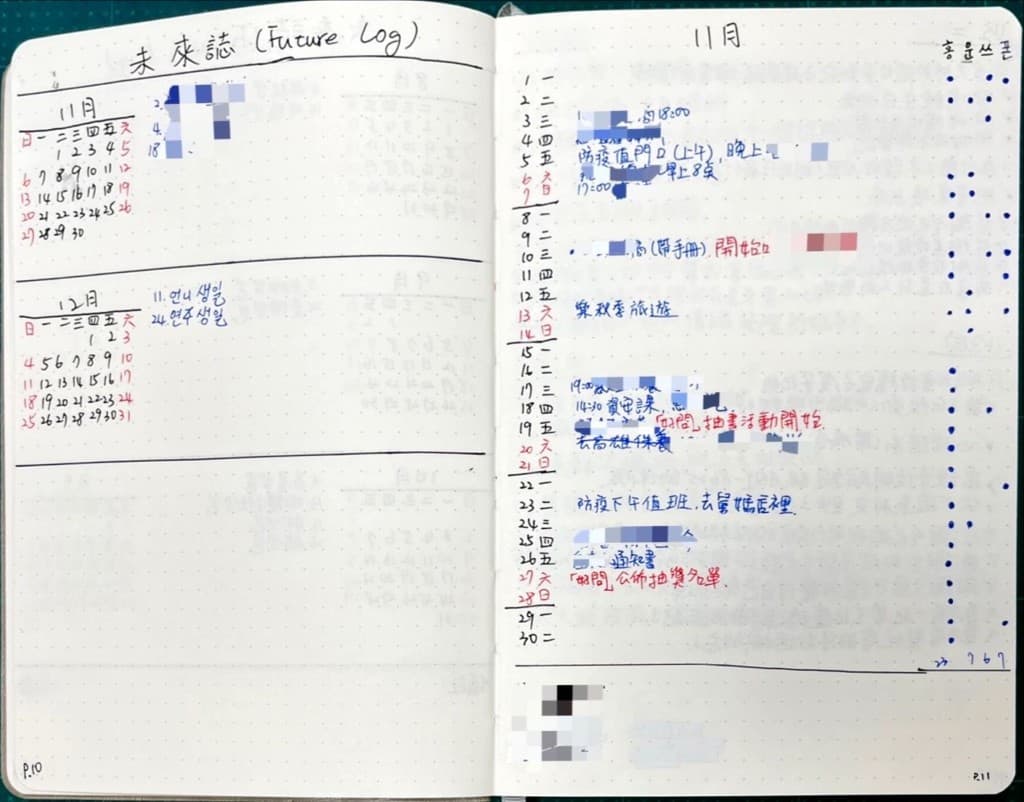 未來誌 (Future Log)
11月
日 一 二 三 四 五 六
1 2 3 4 5
6 7 8 9 10 11 12
13 14 15 16 17 18 19
20 21 22 23 24 25 26
27 28 29 30
2.
4.
18
12月
日 一 二 三 四 五 六
1 2 3
4 5 6 7 8 9 10
11 12 13 14 15 16 17
18 19 20 21 22 23 24
25 26 27 28 29 30 31
11. 언니 생일
24. 연주 생일
P.10
11月
홍 운 쓰 폰
1 一
2 二
3 三 18:00
4 四
5 五 防疫值門口(上午), 晚上
6 六 早上8點
7 日 17:00
8 一
9 二
10 三 (帶手冊), 開始
11 四
12 五
13 六 樂秋季旅遊
14 日
15 一
16 二
17 三 19:00
18 四 14:30 資安課,
19 五 抽書活動開始
20 六 去高雄保養
21 日
22 一
23 二 防疫下午值班, 去舅媽店裡
24 三
25 四
26 五 通知書
27 六 公佈抽獎名單
28 日
29 一
30 二
23 7 6 7
P.11